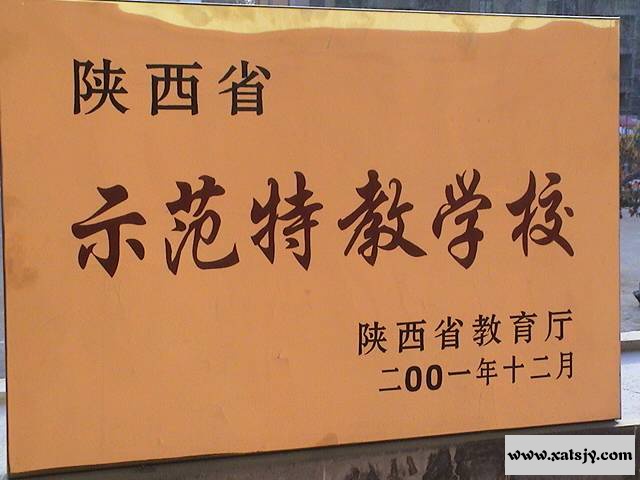 陕西省
示范特教学校
陕西省教育厅
二00一年十二月
www.xatsjy.com